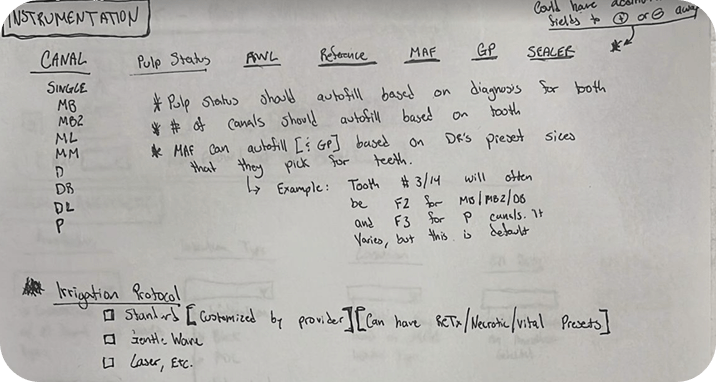 INSTRUMENTATION
Could have additional
fields to ⊕ or ⊖ away
CANAL Pulp Status AWL Reference MAF GP SEALER *
SINGLE
MB
MB2
ML
MM
D
DB
DL
P
* Pulp status should autofill based on diagnosis for both
* # of canals should autofill based on tooth
* MAF can autofill [& GP] based on DR's preset sizes
that they pick for teeth.
↳ Example: Tooth # 3/14 will often
be F2 for MB/MB2/DB
and F3 for P canals. It
varies, but this is default
* Irrigation Protocol
☐ Standard [Customized by provider] [Can have ReTx/Necrotic/Vital Presets]
☐ Gentle Wave
☐ Laser, Etc.